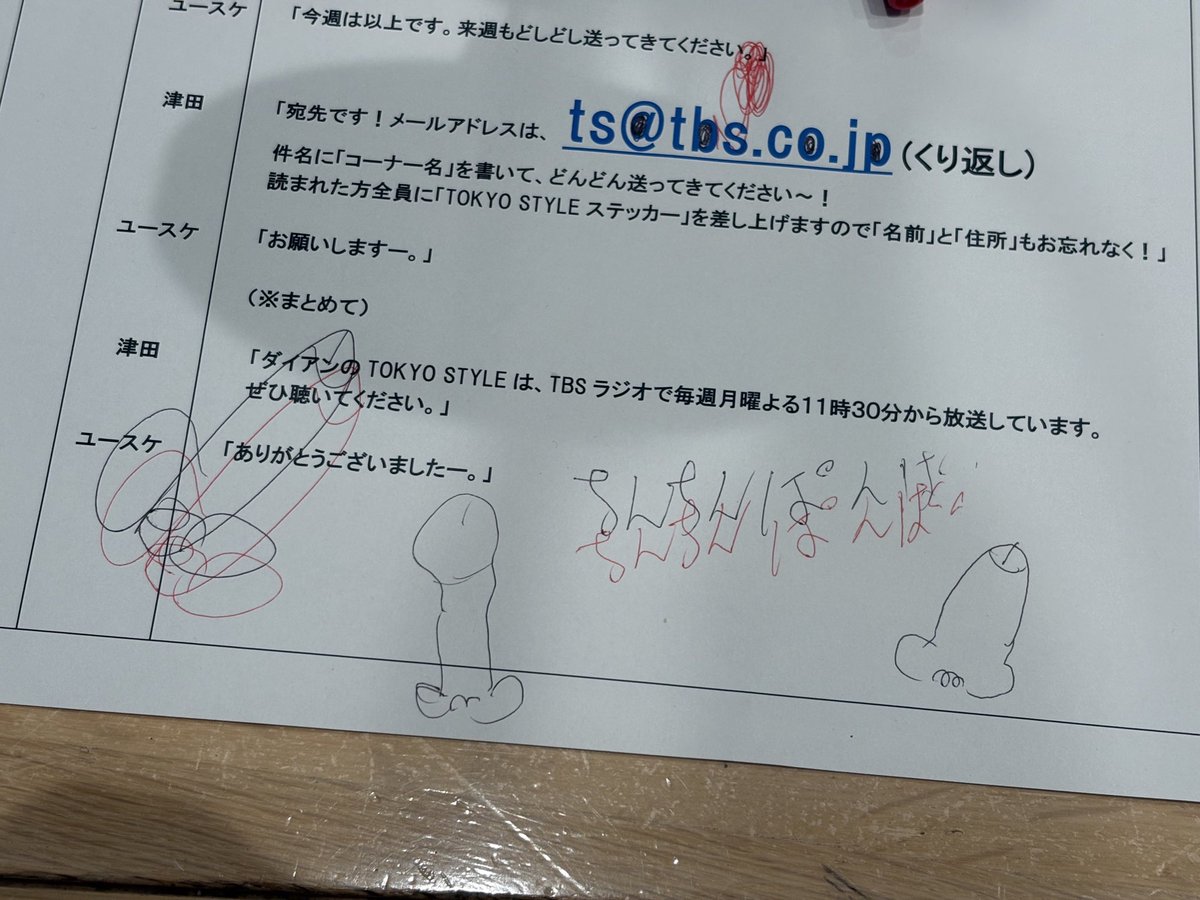 ユースケ 「今週は以上です。来週もどしどし送ってきてください。」
津田 「宛先です！メールアドレスは、 ts@tbs.co.jp (くり返し)
件名に「コーナー名」を書いて、どんどん送ってきてください～！
読まれた方全員に「TOKYO STYLE ステッカー」を差し上げますので「名前」と「住所」もお忘れなく！」
ユースケ 「お願いしますー。」
(※まとめて)
津田 「ダイアンの TOKYO STYLE は、TBS ラジオで毎週月曜よる11時30分から放送しています。
ぜひ聴いてください。」
ユースケ 「ありがとうございましたー。」
ちんちんぽ
ちんちんぽ